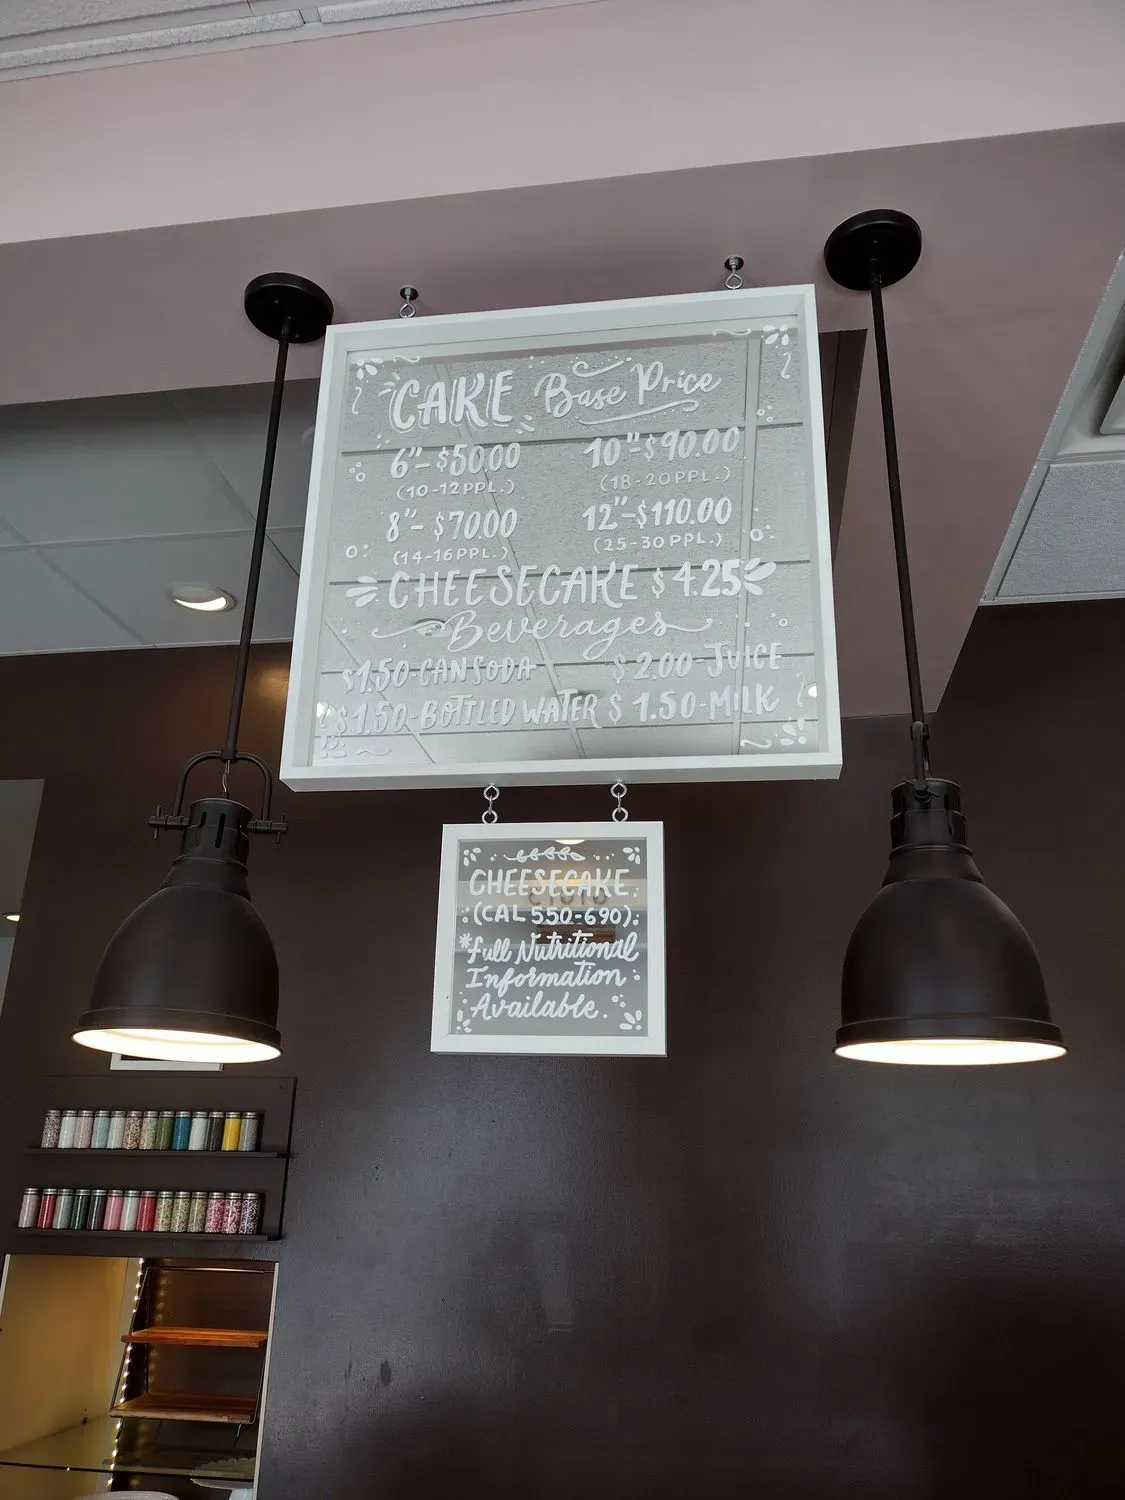 CAKE Base Price
6"-$50.00 10"-$90.00
(10-12PPL.) (18-20PPL.)
8"-$70.00 12"-$110.00
(14-16PPL.) (25-30PPL.)
CHEESECAKE $4.25
Beverages
$1.50-CAN SODA $2.00-JUICE
$1.50-BOTTLED WATER $1.50-MILK
CHEESECAKE
(CAL 550-690)
*Full Nutritional
Information
Available.